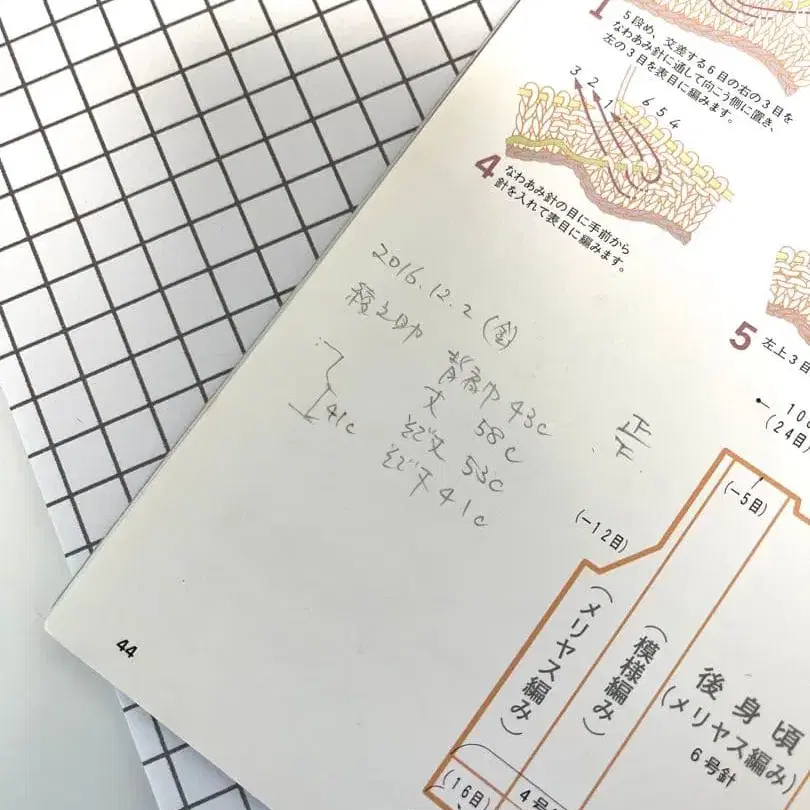 1
5段め、交差する6目の右の3目を
なわあみ針に通して向こう側に置き、
左の3目を表目に編みます。
3 2 1 6 5 4
4
なわあみ針の目に手前から
針を入れて表目に編みます。
2016.12.2 (金)
之助 背肩巾 43c
丈 58c
そで丈 53c
そで下 41c
41c
5
左上3目
(24目)
(-5目)
(-12目)
(メリヤス編み)
(模様編み)
後身頃
(メリヤス編み)
6号針
(16目)
4号
44